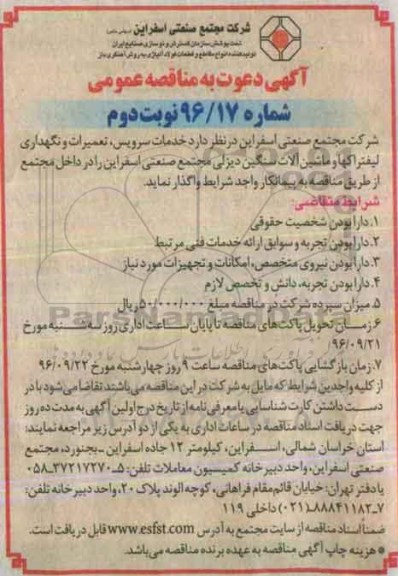 شرکت مجتمع صنعتی اسفراین (سهامی خاص)
تحت پوشش سازمان گسترش و نوسازی صنایع ایران
تولیدکننده انواع مقاطع و قطعات فولاد آلیاژی به روش آهنگری باز
آگهی دعوت به مناقصه عمومی
شماره ۹۶/۱۷ نوبت دوم
شرکت مجتمع صنعتی اسفراین درنظر دارد خدمات سرویس، تعمیرات و نگهداری
لیفتراکها و ماشین آلات سنگین دیزلی مجتمع صنعتی اسفراین را در داخل مجتمع
از طریق مناقصه به پیمانکار واجد شرایط واگذار نماید.
شرایط متقاضی:
۱.دارا بودن شخصیت حقوقی
۲.دارا بودن تجربه و سوابق ارائه خدمات فنی مرتبط
۳.دارا بودن نیروی متخصص، امکانات و تجهیزات مورد نیاز
۴.دارا بودن تجربه، دانش و تخصص لازم
۵.میزان سپرده شرکت در مناقصه مبلغ ۵۰/۰۰۰/۰۰۰ریال
۶.زمــان تحویل پاکت‌های مناقصه تا پایان ســاعت اداری روز سه شــنبه مورخ
۹۶/۰۹/۲۱
۷.زمان بازگشایی پاکت‌های مناقصه ساعت ۹ روز چهارشنبه مورخ ۹۶/۰۹/۲۲
از کلیه واجدین شرایط که مایل به شرکت در این مناقصه می‌باشند تقاضا می‌شود با در
دســت داشتن کارت شناسایی یا معرفی‌نامه از تاریخ درج اولین آگهی به مدت ده روز
جهت دریافت اسناد مناقصه در ساعات اداری به یکی از دو آدرس زیر مراجعه نمایند:
استان خراسان شمالی، اســفراین، کیلومتر ۱۲ جاده اسفراین ـ بجنورد، مجتمع
صنعتی اسفراین، واحد دبیرخانه کمیسیون معاملات تلفن: ۵ـ۳۷۲۱۷۲۷۰ـ۰۵۸
یا دفتر تهران: خیابان قائم‌مقام فراهانی، کوچه الوند پلاک ۲۰، واحد دبیرخانه تلفن:
۷ـ۸۸۸۴۱۱۸۲(۰۲۱) داخلی ۱۱۹
ضمناً اسناد مناقصه از سایت مجتمع به آدرس www.esfst.com قابل دریافت است.
* هزینه چاپ آگهی مناقصه به عهده برنده مناقصه می‌باشد.